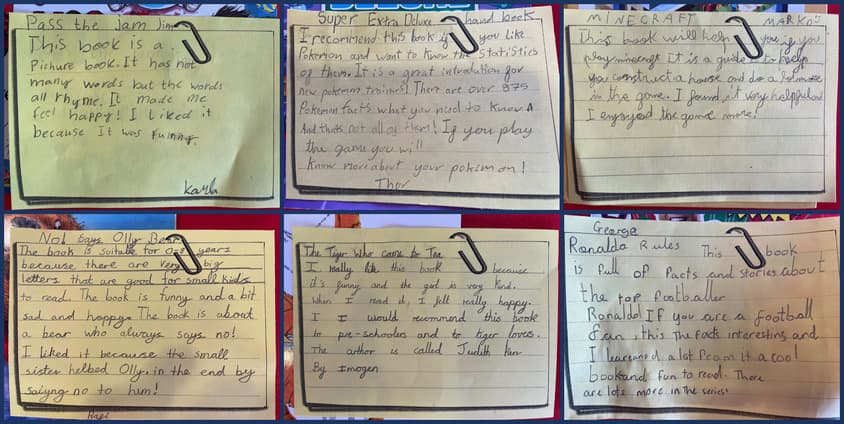 Pass the Jam Jim
This book is a
Picture book. It has not
many words but the words
all rhyme. It made me
feel happy! I Liked it
because It was Funny.
Karla
Super Extra Deluxe hand book
I recommend this book if you like
Pokemon and want to know the Statistics
of them. It is a great introdution for
new pokemon trainers! There are over 875
Pokemon facts what you need to know
And thats not all of them! If you play
the game you will
know more about your pokemon!
Thor
MINECRAFT MARKO
This book will help you if you
play minecraft It is a guide to help
you construct a house and do a
in the game. I found it very helpful and
I enjoyed the game more!
No! Says Olly Bear
The book is suitable for 0-5 years
because there are very big
letters that are good for small kids
to read. The book is funny and a bit
sad and happy. The book is about
a bear who always says no!
I liked it because the small
sister helbed Olly. in the end by
saiyng no to him!
The Tiger Who came to Tea
I really like this book because
it's funny and the girl is very kind.
When I read it, I felt really happy.
I I would recommend this book
to pre-schoolers and to tiger lovers.
The author is called Judith Kerr
By Imogen
George
Ronaldo Rules This book
is full of facts and stories about
the top footballer
Ronaldo! If you are a football
fan, this The facts interesting and
I learned a lot from it a cool
book and fun to read. There
are lots more in the series!